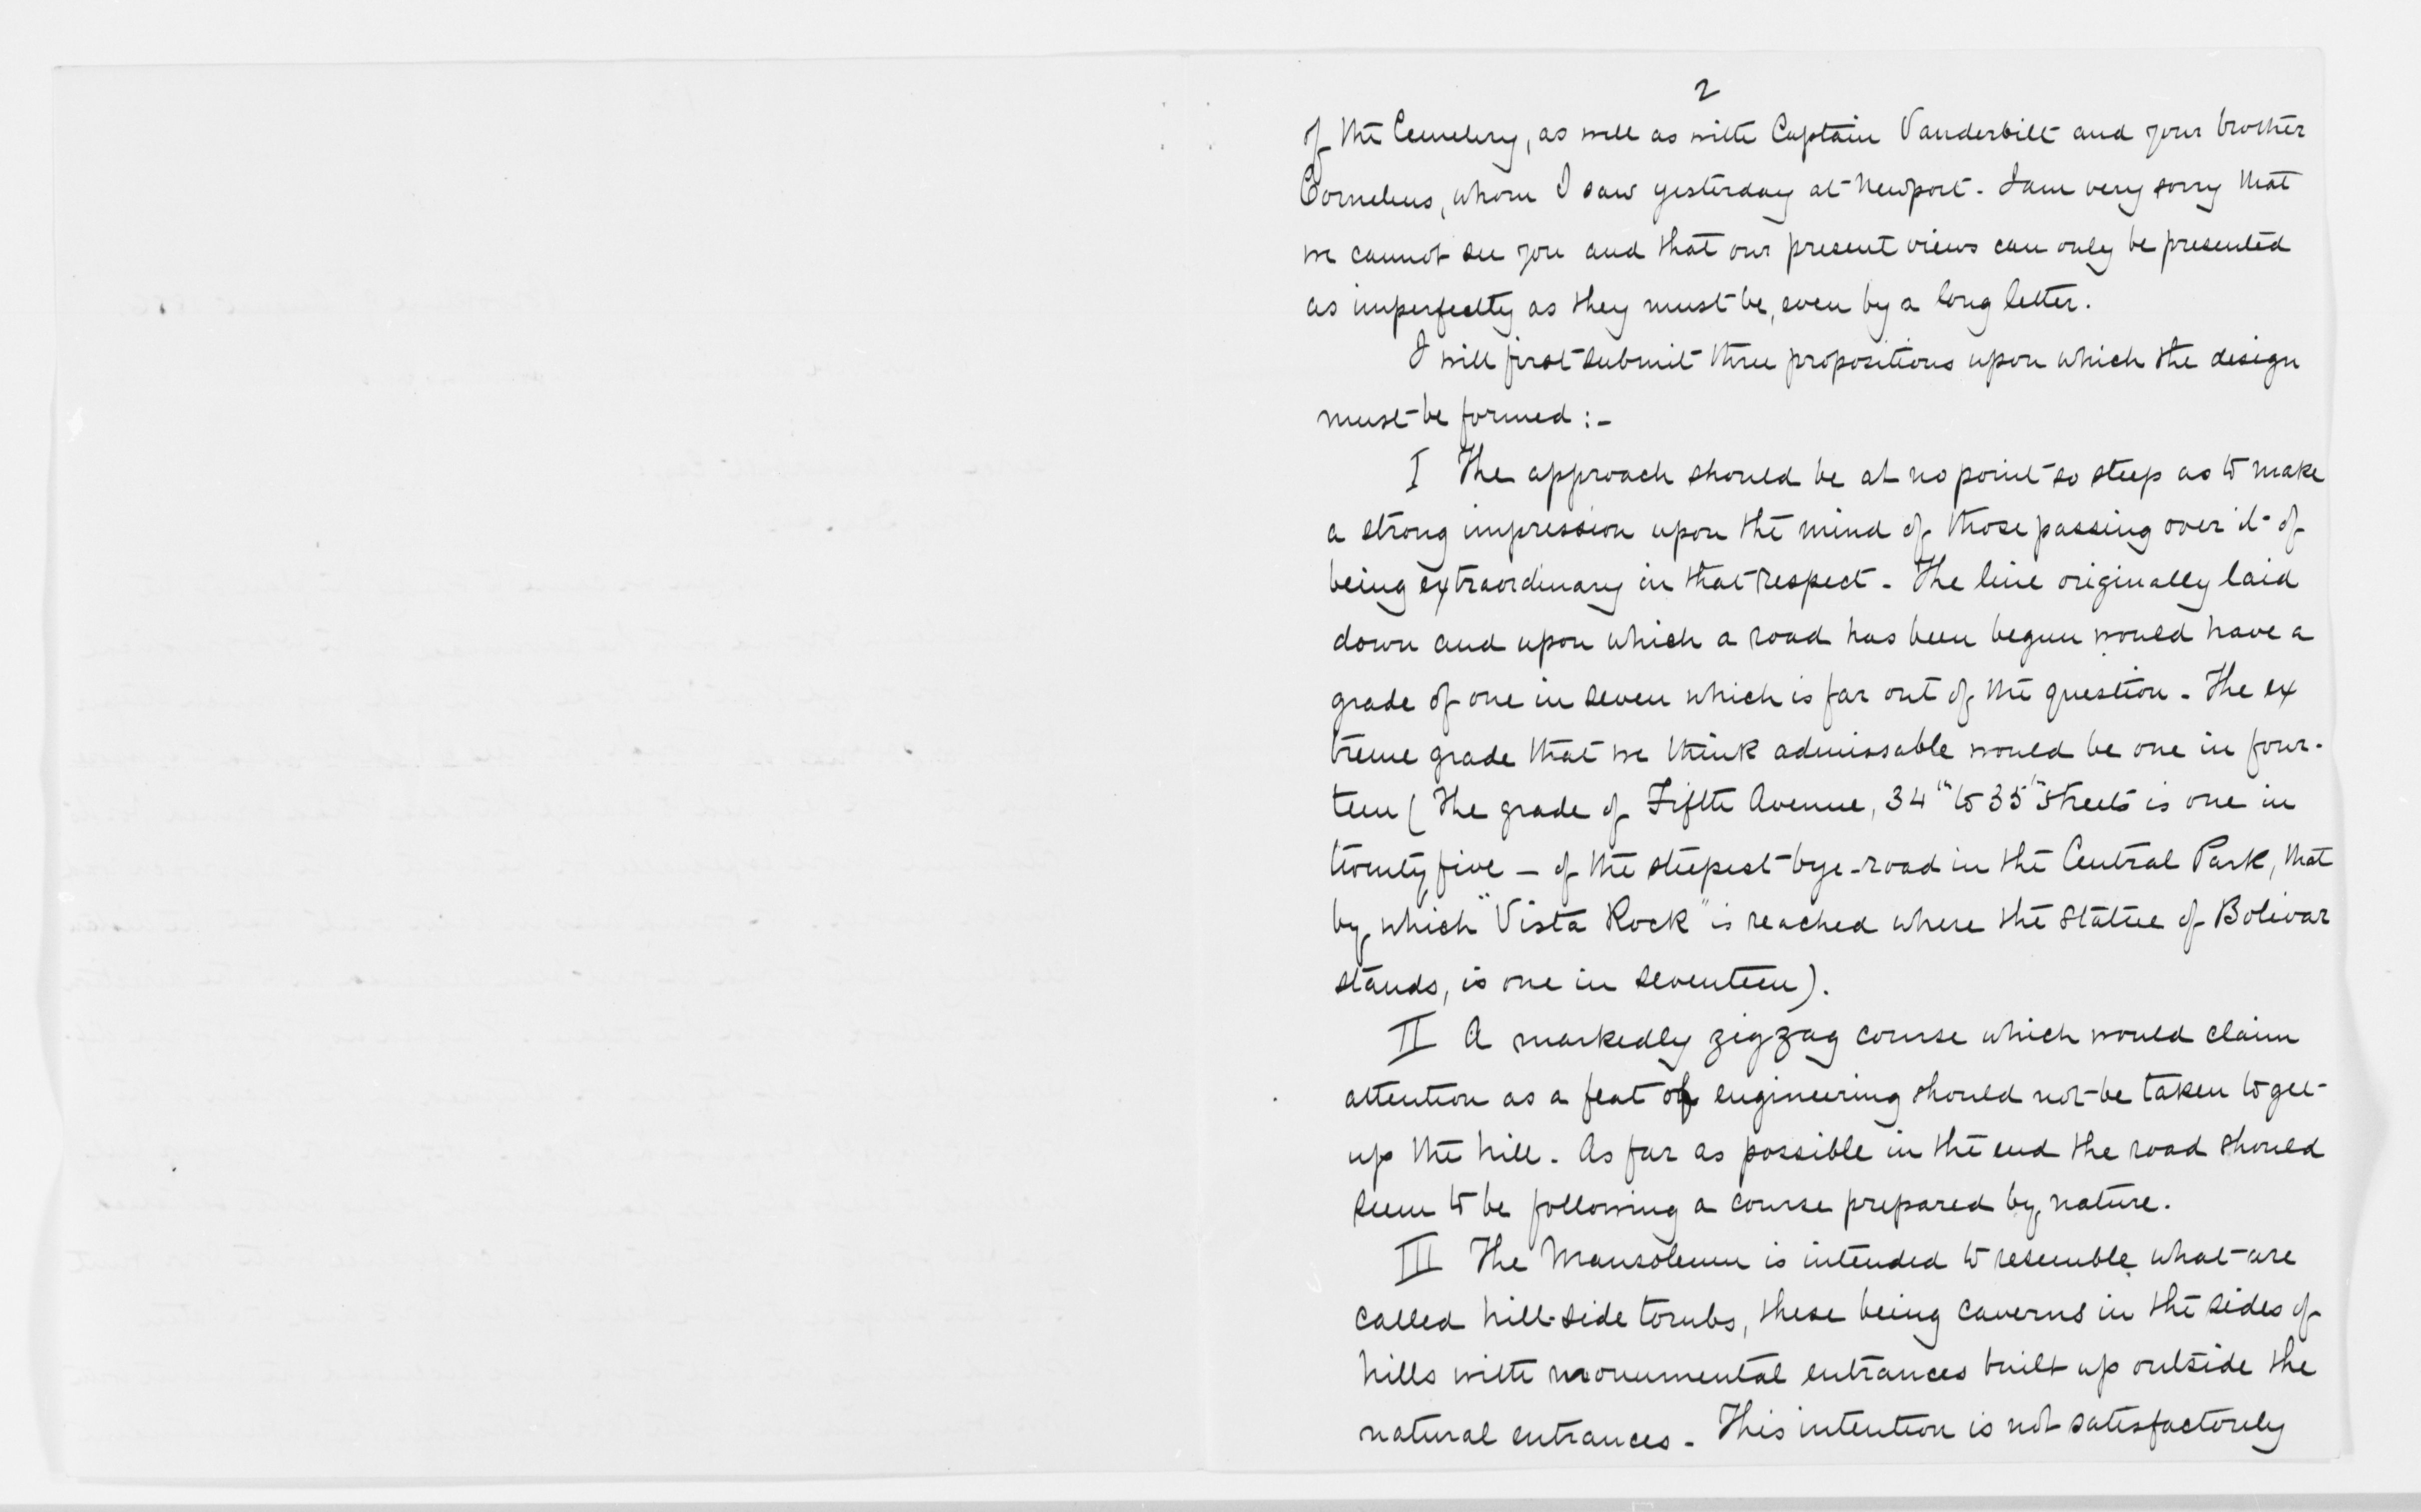 2
of the Cemetery, as well as with Captain Vanderbilt and your brother
Cornelius, whom I saw yesterday at Newport. I am very sorry that
we cannot see you and that our present views can only be presented
as imperfectly as they must be, even by a long letter.
I will first submit three propositions upon which the design
must be formed:-
I The approach should be at no point so steep as to make
a strong impression upon the mind of those passing over it of
being extraordinary in that respect. The line originally laid
down and upon which a road has been begun would have a
grade of one in seven which is far out of the question. The ex
treme grade that we think admissable would be one in four-
teen (The grade of Fifth Avenue, 34th to 35th Streets is one in
twenty five — of the steepest bye-road in the Central Park, that
by which "Vista Rock" is reached where the statue of Bolivar
stands, is one in seventeen).
II A markedly zigzag course which would claim
attention as a feat of engineering should not be taken to get
up the hill. As far as possible in the end the road should
seem to be following a course prepared by nature.
III The Mausoleum is intended to resemble what are
called hill-side tombs, these being caverns in the sides of
hills with monumental entrances built up outside the
natural entrances. This intention is not satisfactorily